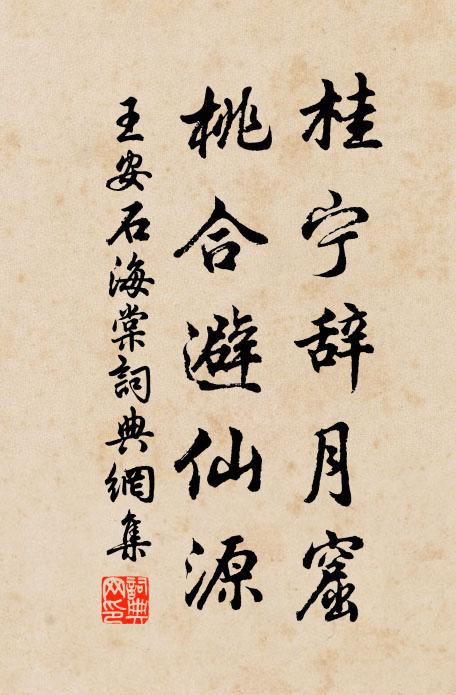 桂宁辞月窟
桃合避仙源
王安石海棠詞典網集
詞典网印